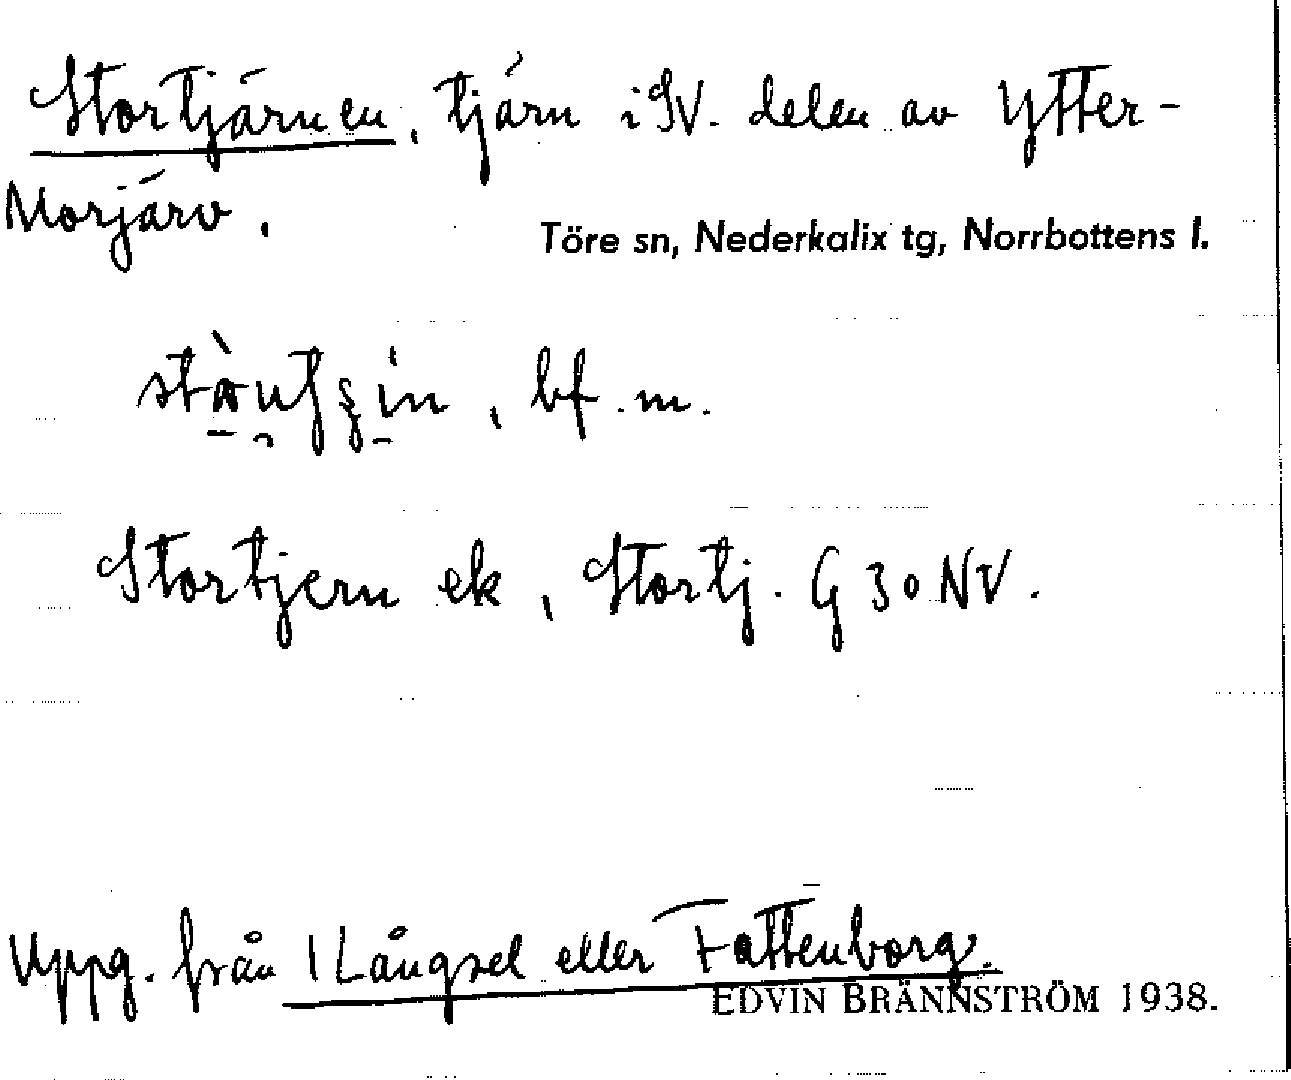 Stortjärnen, tjärn i SV. delen av Ytter-
Morjärv.
Töre sn, Nederkalix tg, Norrbottens l.
bf. m.
Stortjern ek, Stortj. G 30 NV.
Uppg. från Långsel eller Fattenborg.
EDVIN BRÄNNSTRÖM 1938.